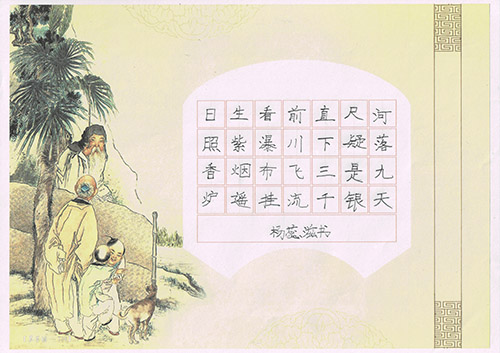 日照香炉
生紫烟遥
看瀑布挂
前川飞流
直下三千
尺疑是银
河落九天
杨蕊书